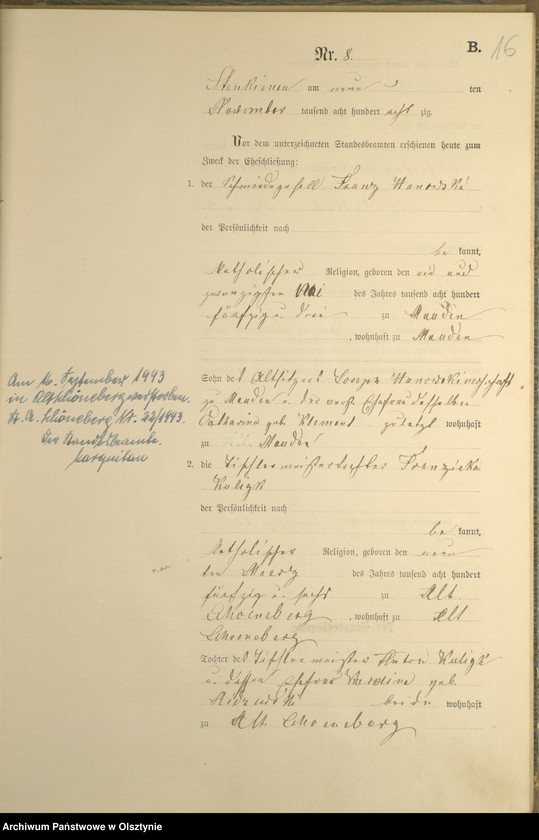 B. 16
Nr. 8.
am neun ten
November tausend acht hundert acht zig.
Vor dem unterzeichneten Standesbeamten erschienen heute zum
Zweck der Eheschließung:
1. der Schmiedegesell Franz
der Persönlichkeit nach
be kannt,
katholischer Religion, geboren den ein und
zwanzigsten Mai des Jahres tausend acht hundert
fünfzig u. drei zu Mauden
, wohnhaft zu Mauden
Sohn des Altsitzers
zu Mauden u. der Ehefrau desselben
Catharina geb. Klement zuletzt wohnhaft
zu Mauden
2. die Tischlermeistertochter Franziska
Kuligk
der Persönlichkeit nach
be kannt,
katholischer Religion, geboren den neun
ten Maerz des Jahres tausend acht hundert
fünfzig u. sechs zu Alt
Schoeneberg , wohnhaft zu Alt
Schoeneberg
Tochter des Tischlermeister Anton Kuligk
u. dessen Ehefrau geb.
beide wohnhaft
zu Alt Schoeneberg
Am 16. September 1943
in Altschöneberg verstorben.
St. A. Schöneberg Nr. 22/1943.
Der Standesbeamte.
Archiwum Państwowe w Olsztynie